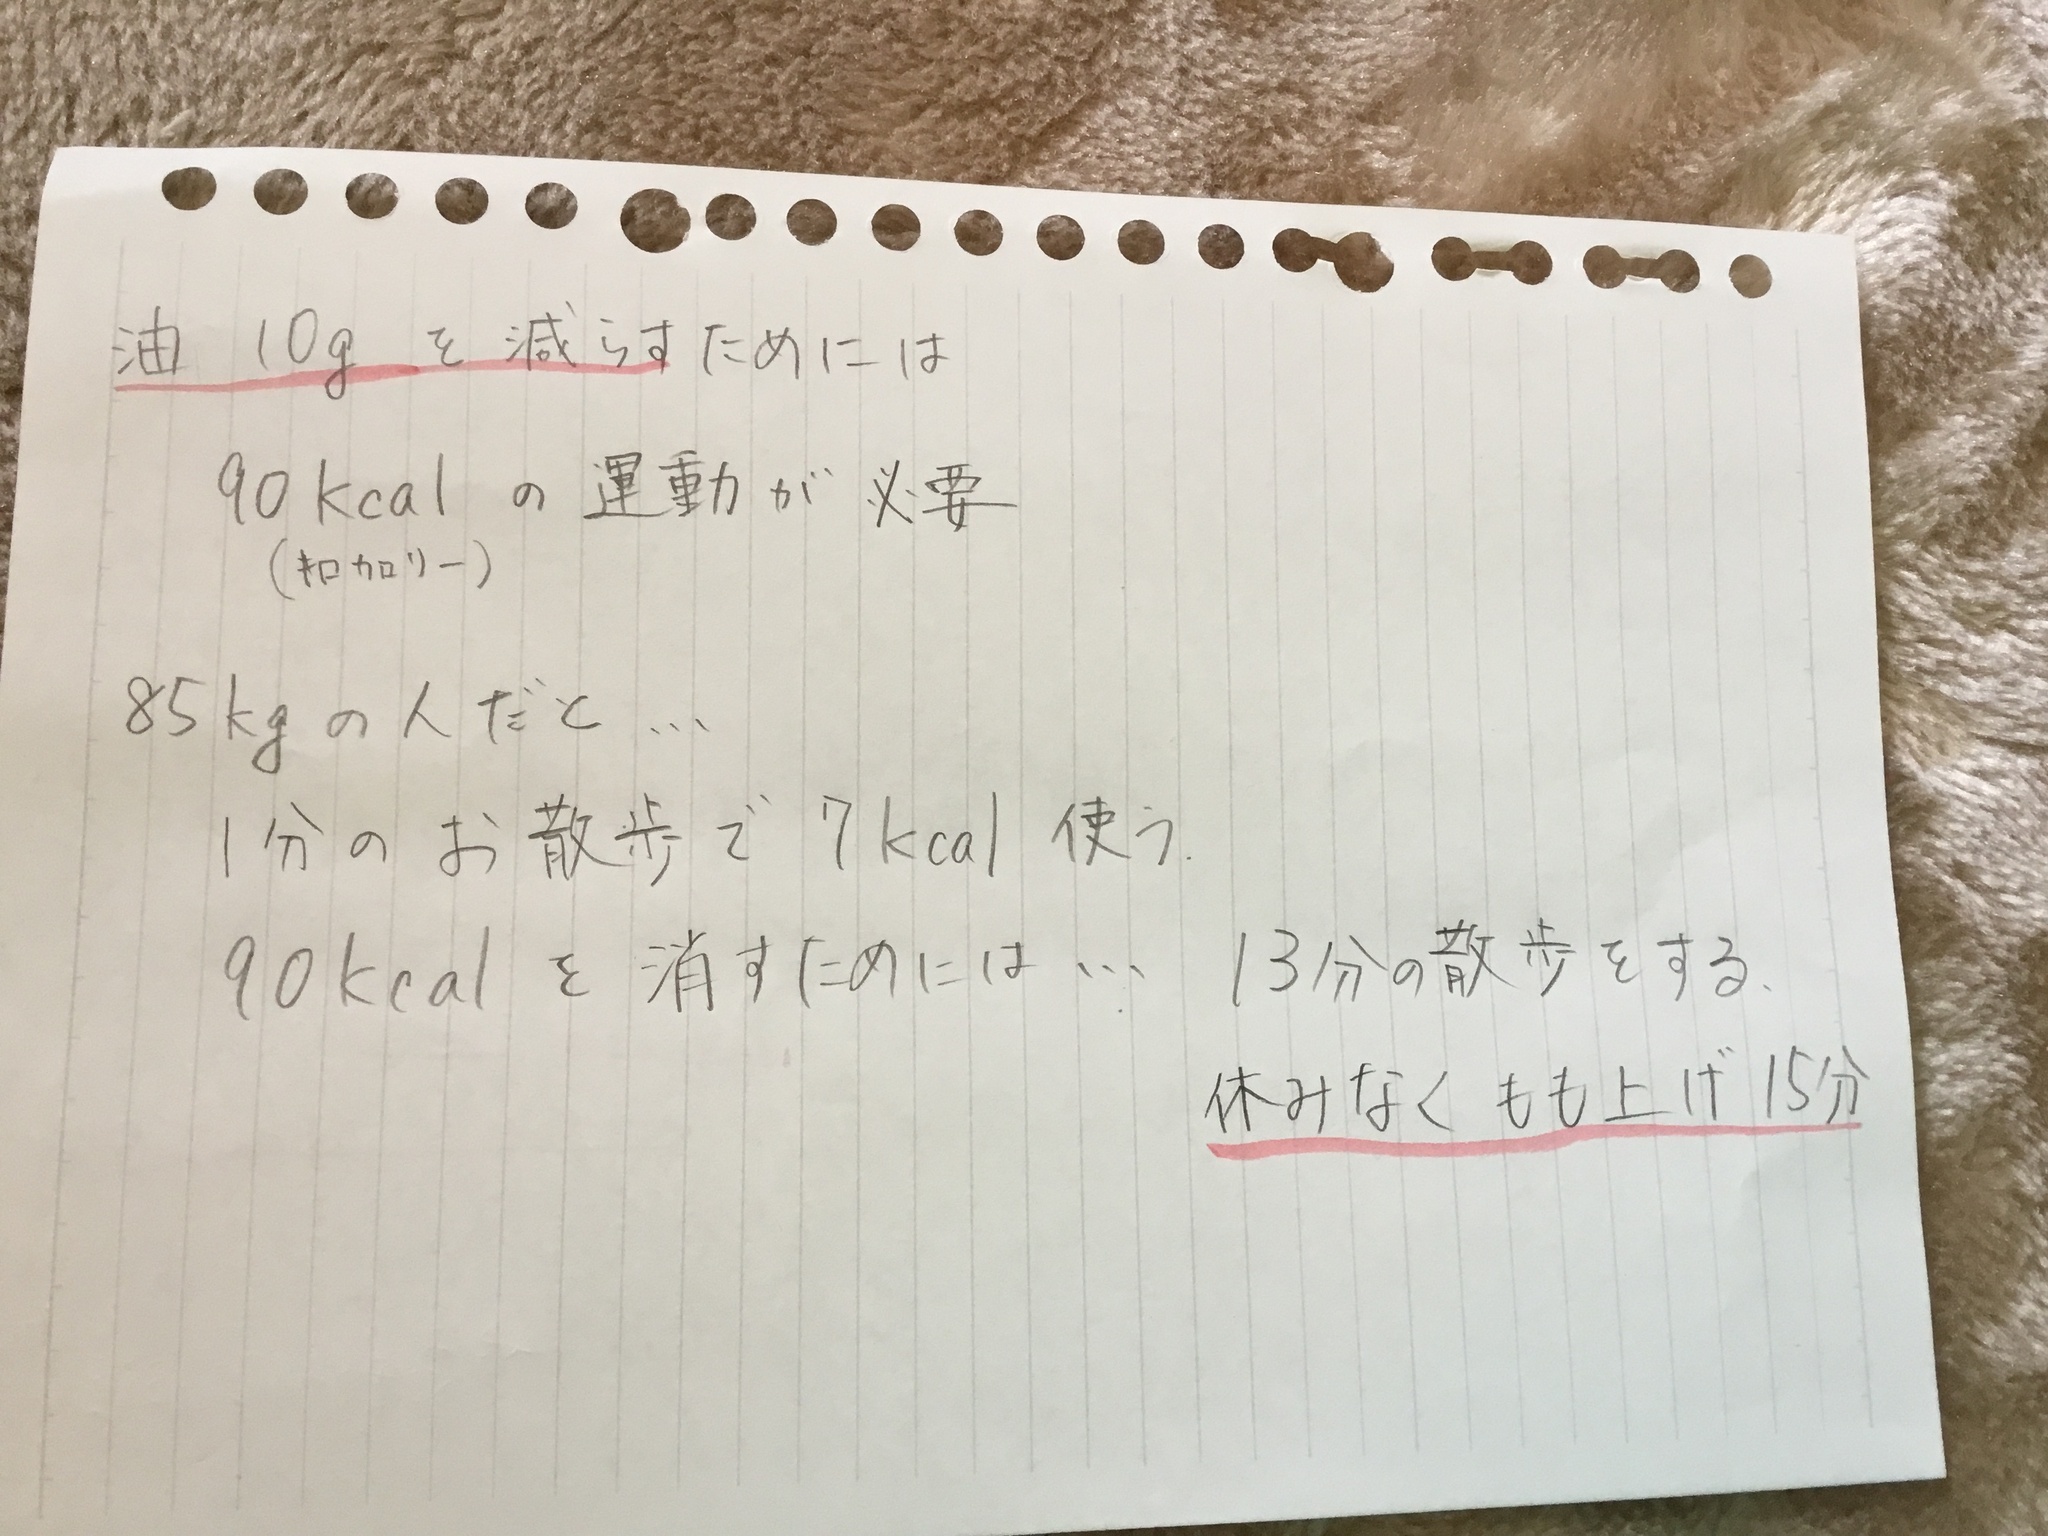 油 10g を減らすためには
90kcalの運動が必要
(キロカロリー)
85kgの人だと…
1分のお散歩で7kcal使う.
90kcalを消すためには… 13分の散歩をする、
休みなくもも上げ15分